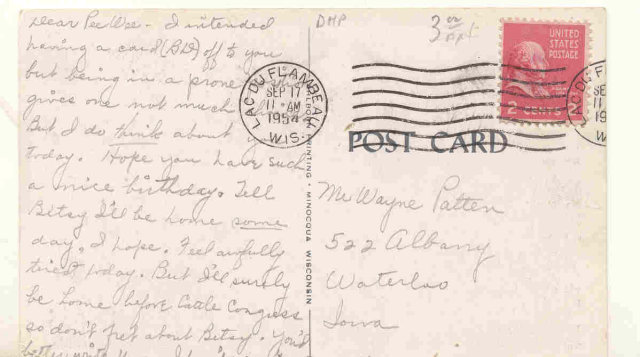 Dear PeeWee. I intended
having a card (BD) off to you
but being in a prone
gives one not much
But I do think about
today. Hope you have such
a nice birthday. Tell
Betsy I'll be home some
day, I hope. Feel awfully
tired today. But I'll surely
be home before Cattle Congress
so don't fret about Betsy. You'd
DMP
3
LAC DU FLAMBEAU
SEP 17
11 AM
1954
WIS.
UNITED
STATES
POSTAGE
2 CENTS
POST CARD
PRINTING • MINOCQUA WISCONSIN
Mr Wayne Patten
522 Albany
Waterloo
Iowa